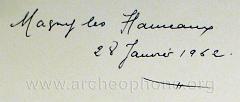 Magny les Hameaux
28 Janvier 1962.
www.archeophone.org